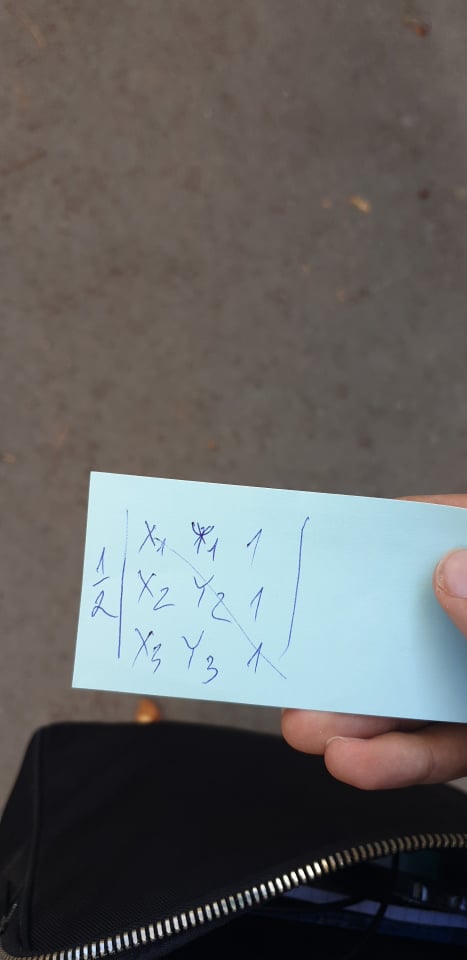 1/2 | X₁ Y₁ 1 |
X₂ Y₂ 1
X₃ Y₃ 1